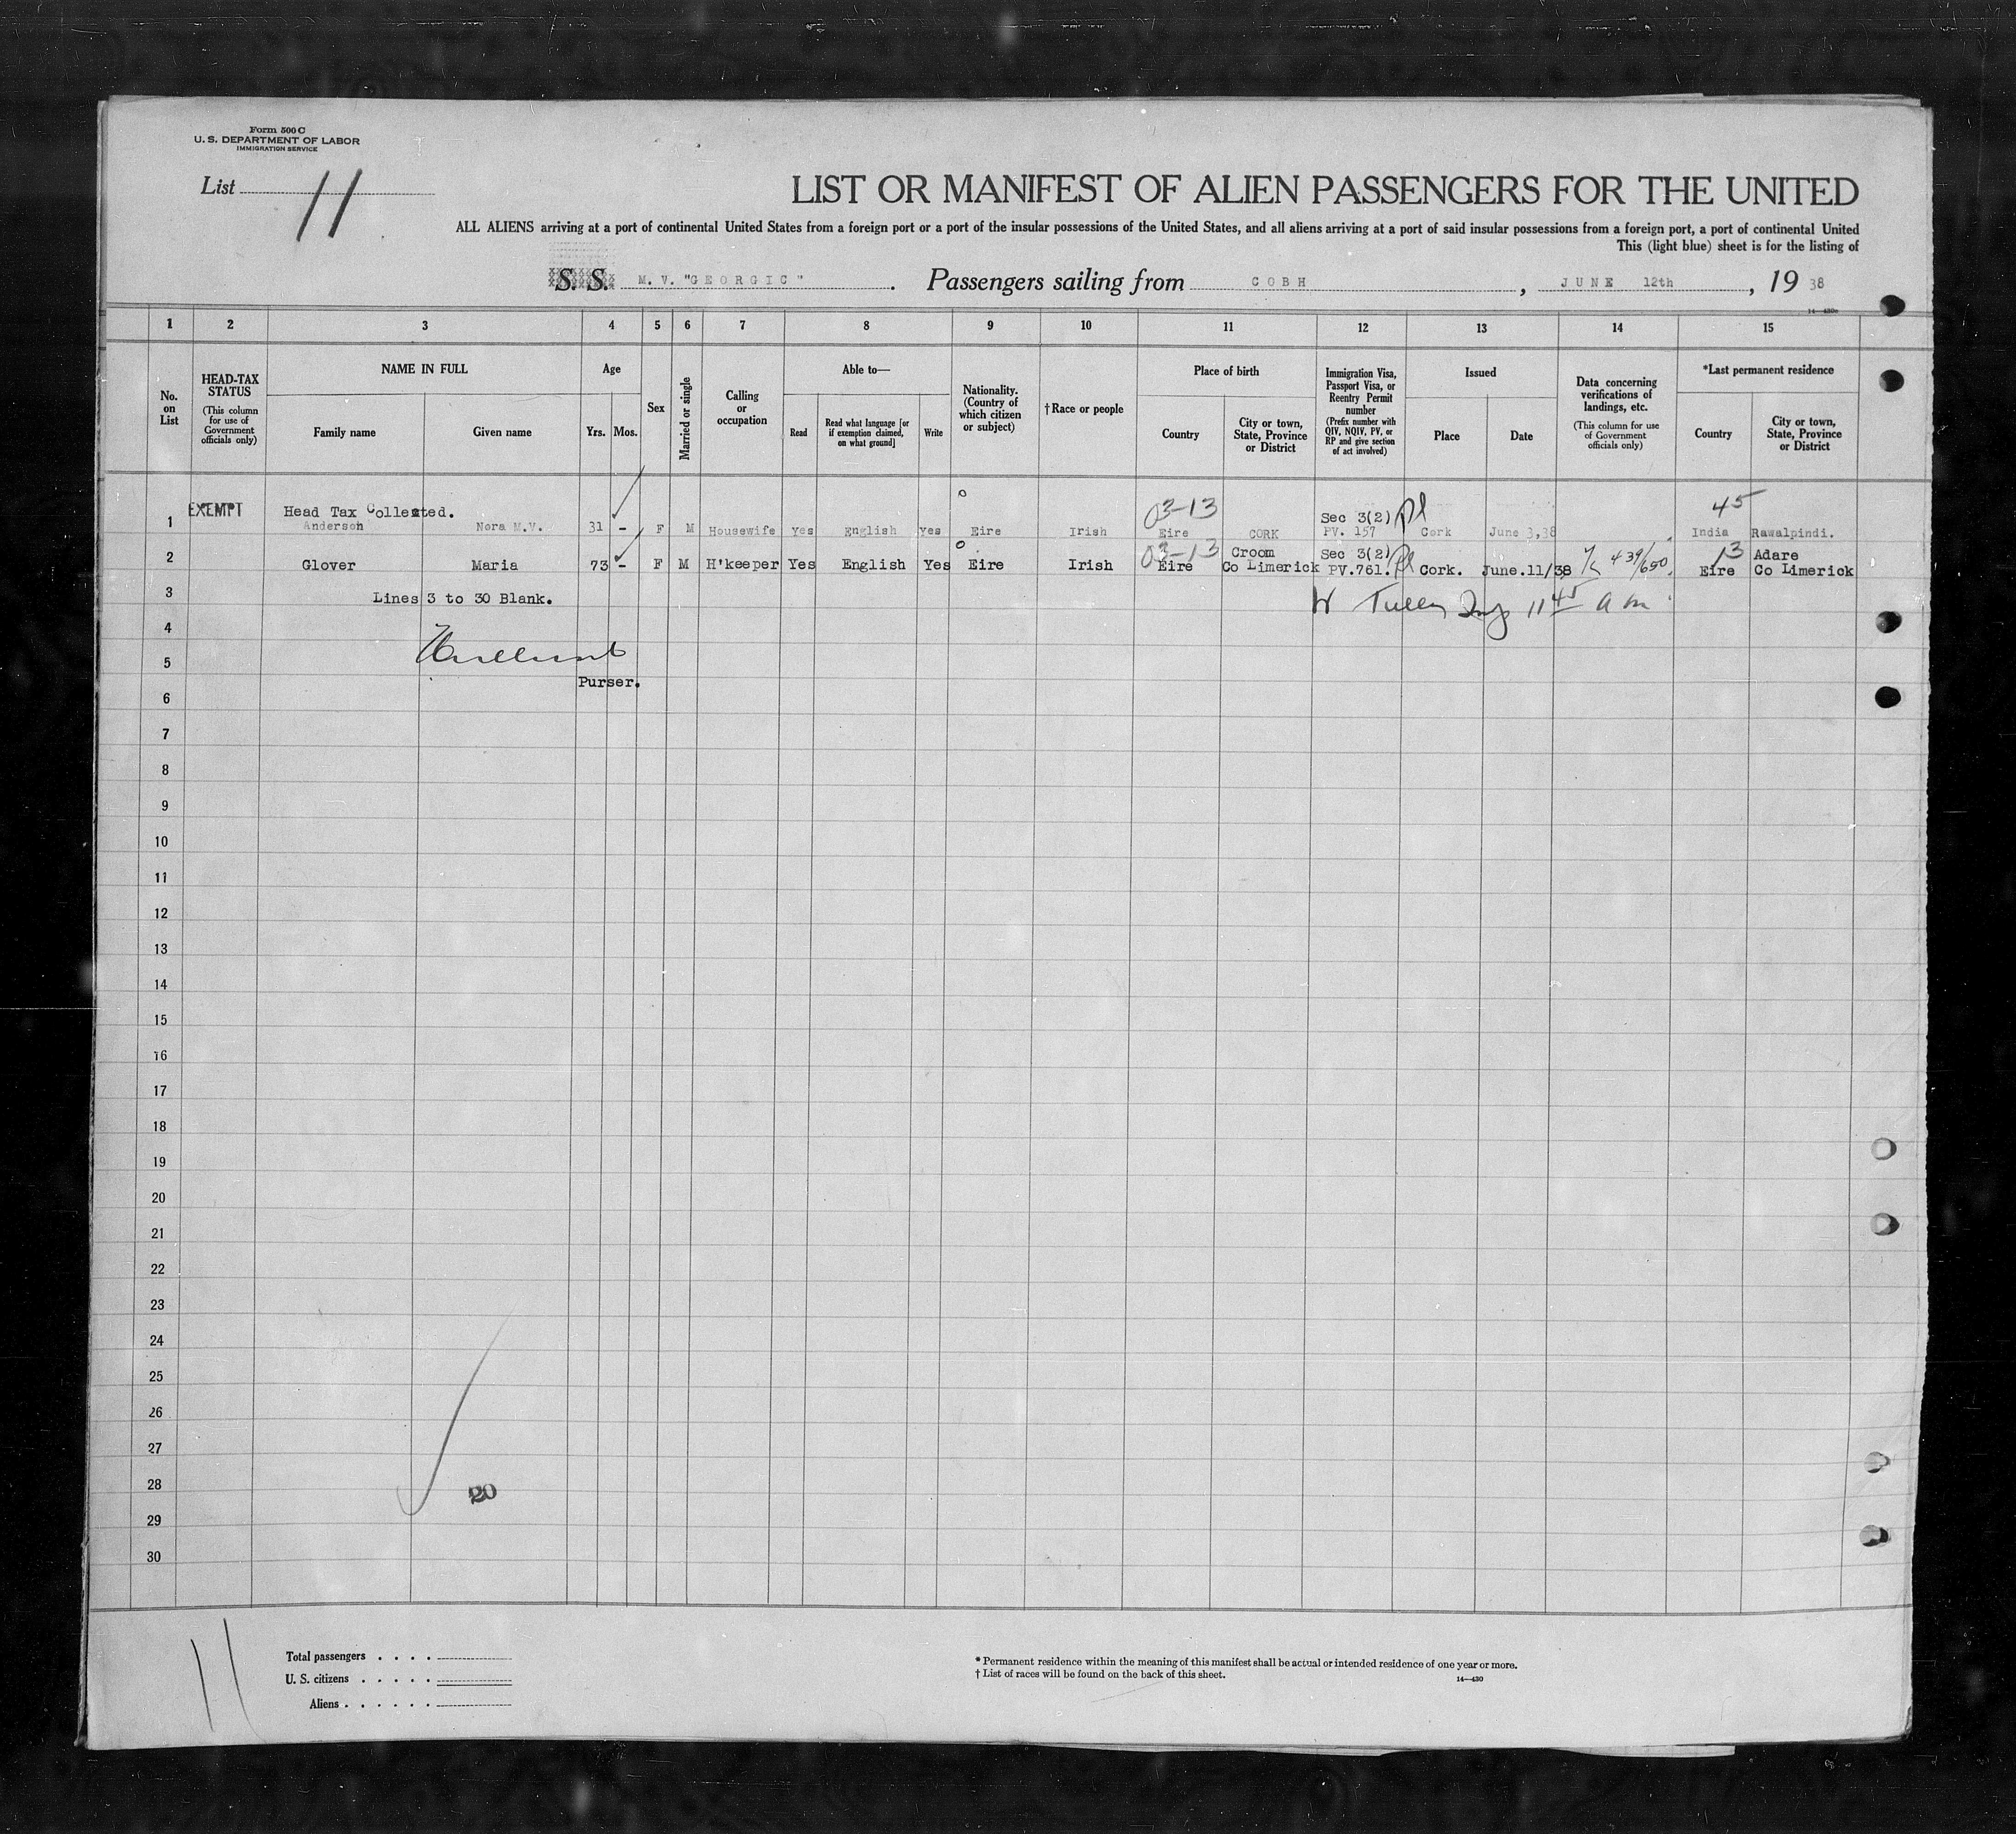 Form 500 C
U. S. DEPARTMENT OF LABOR
IMMIGRATION SERVICE
List 11
LIST OR MANIFEST OF ALIEN PASSENGERS FOR THE UNITED
ALL ALIENS arriving at a port of continental United States from a foreign port or a port of the insular possessions of the United States, and all aliens arriving at a port of said insular possessions from a foreign port, a port of continental United
This (light blue) sheet is for the listing of
S. S. M.V. "GEORGIC". Passengers sailing from COBH, JUNE 12th, 19 38
14—430c
1 2 3 4 5 6 7 8 9 10 11 12 13 14 15
No. on List
HEAD-TAX STATUS (This column for use of Government officials only)
NAME IN FULL
Family name
Given name
Age
Yrs. Mos.
Sex
Married or single
Calling or occupation
Able to—
Read
Read what language [or if exemption claimed, on what ground]
Write
Nationality. (Country of which citizen or subject)
† Race or people
Place of birth
Country
City or town, State, Province or District
Immigration Visa, Passport Visa, or Reentry Permit number (Prefix number with QIV, NQIV, PV, or RP and give section of act involved)
Issued
Place
Date
Data concerning verifications of landings, etc. (This column for use of Government officials only)
*Last permanent residence
Country
City or town, State, Province or District
EXEMPT Head Tax Collected. 03-13 Sec 3(2) 45
1 Anderson Nora M.V. 31 - F M Housewife Yes English Yes Eire Irish Eire CORK PV. 157 Cork June 3,38 India Rawalpindi.
03-13 Croom Sec 3(2) 439/650 13 Adare
2 Glover Maria 73 - F M H'keeper Yes English Yes Eire Irish Eire Co Limerick PV.761. Cork. June.11/38 Eire Co Limerick
3 Lines 3 to 30 Blank. W Tully Insp 11 45 a m
4
5
Purser.
6
7
8
9
10
11
12
13
14
15
16
17
18
19
20
21
22
23
24
25
26
27
28 20
29
30
11
Total passengers . . . .
U. S. citizens . . . . .
Aliens . . . . . .
* Permanent residence within the meaning of this manifest shall be actual or intended residence of one year or more.
† List of races will be found on the back of this sheet.
14—430